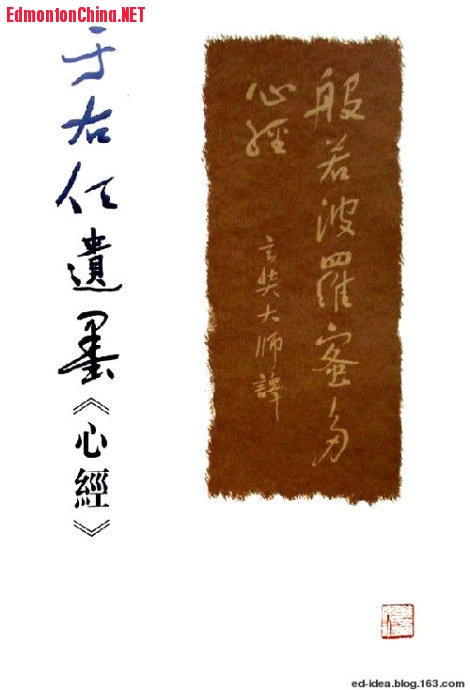 EdmontonChina.NET
于右任遺墨《心經》
般若波羅蜜多
心經
玄奘大師譯
ed-idea.blog.163.com